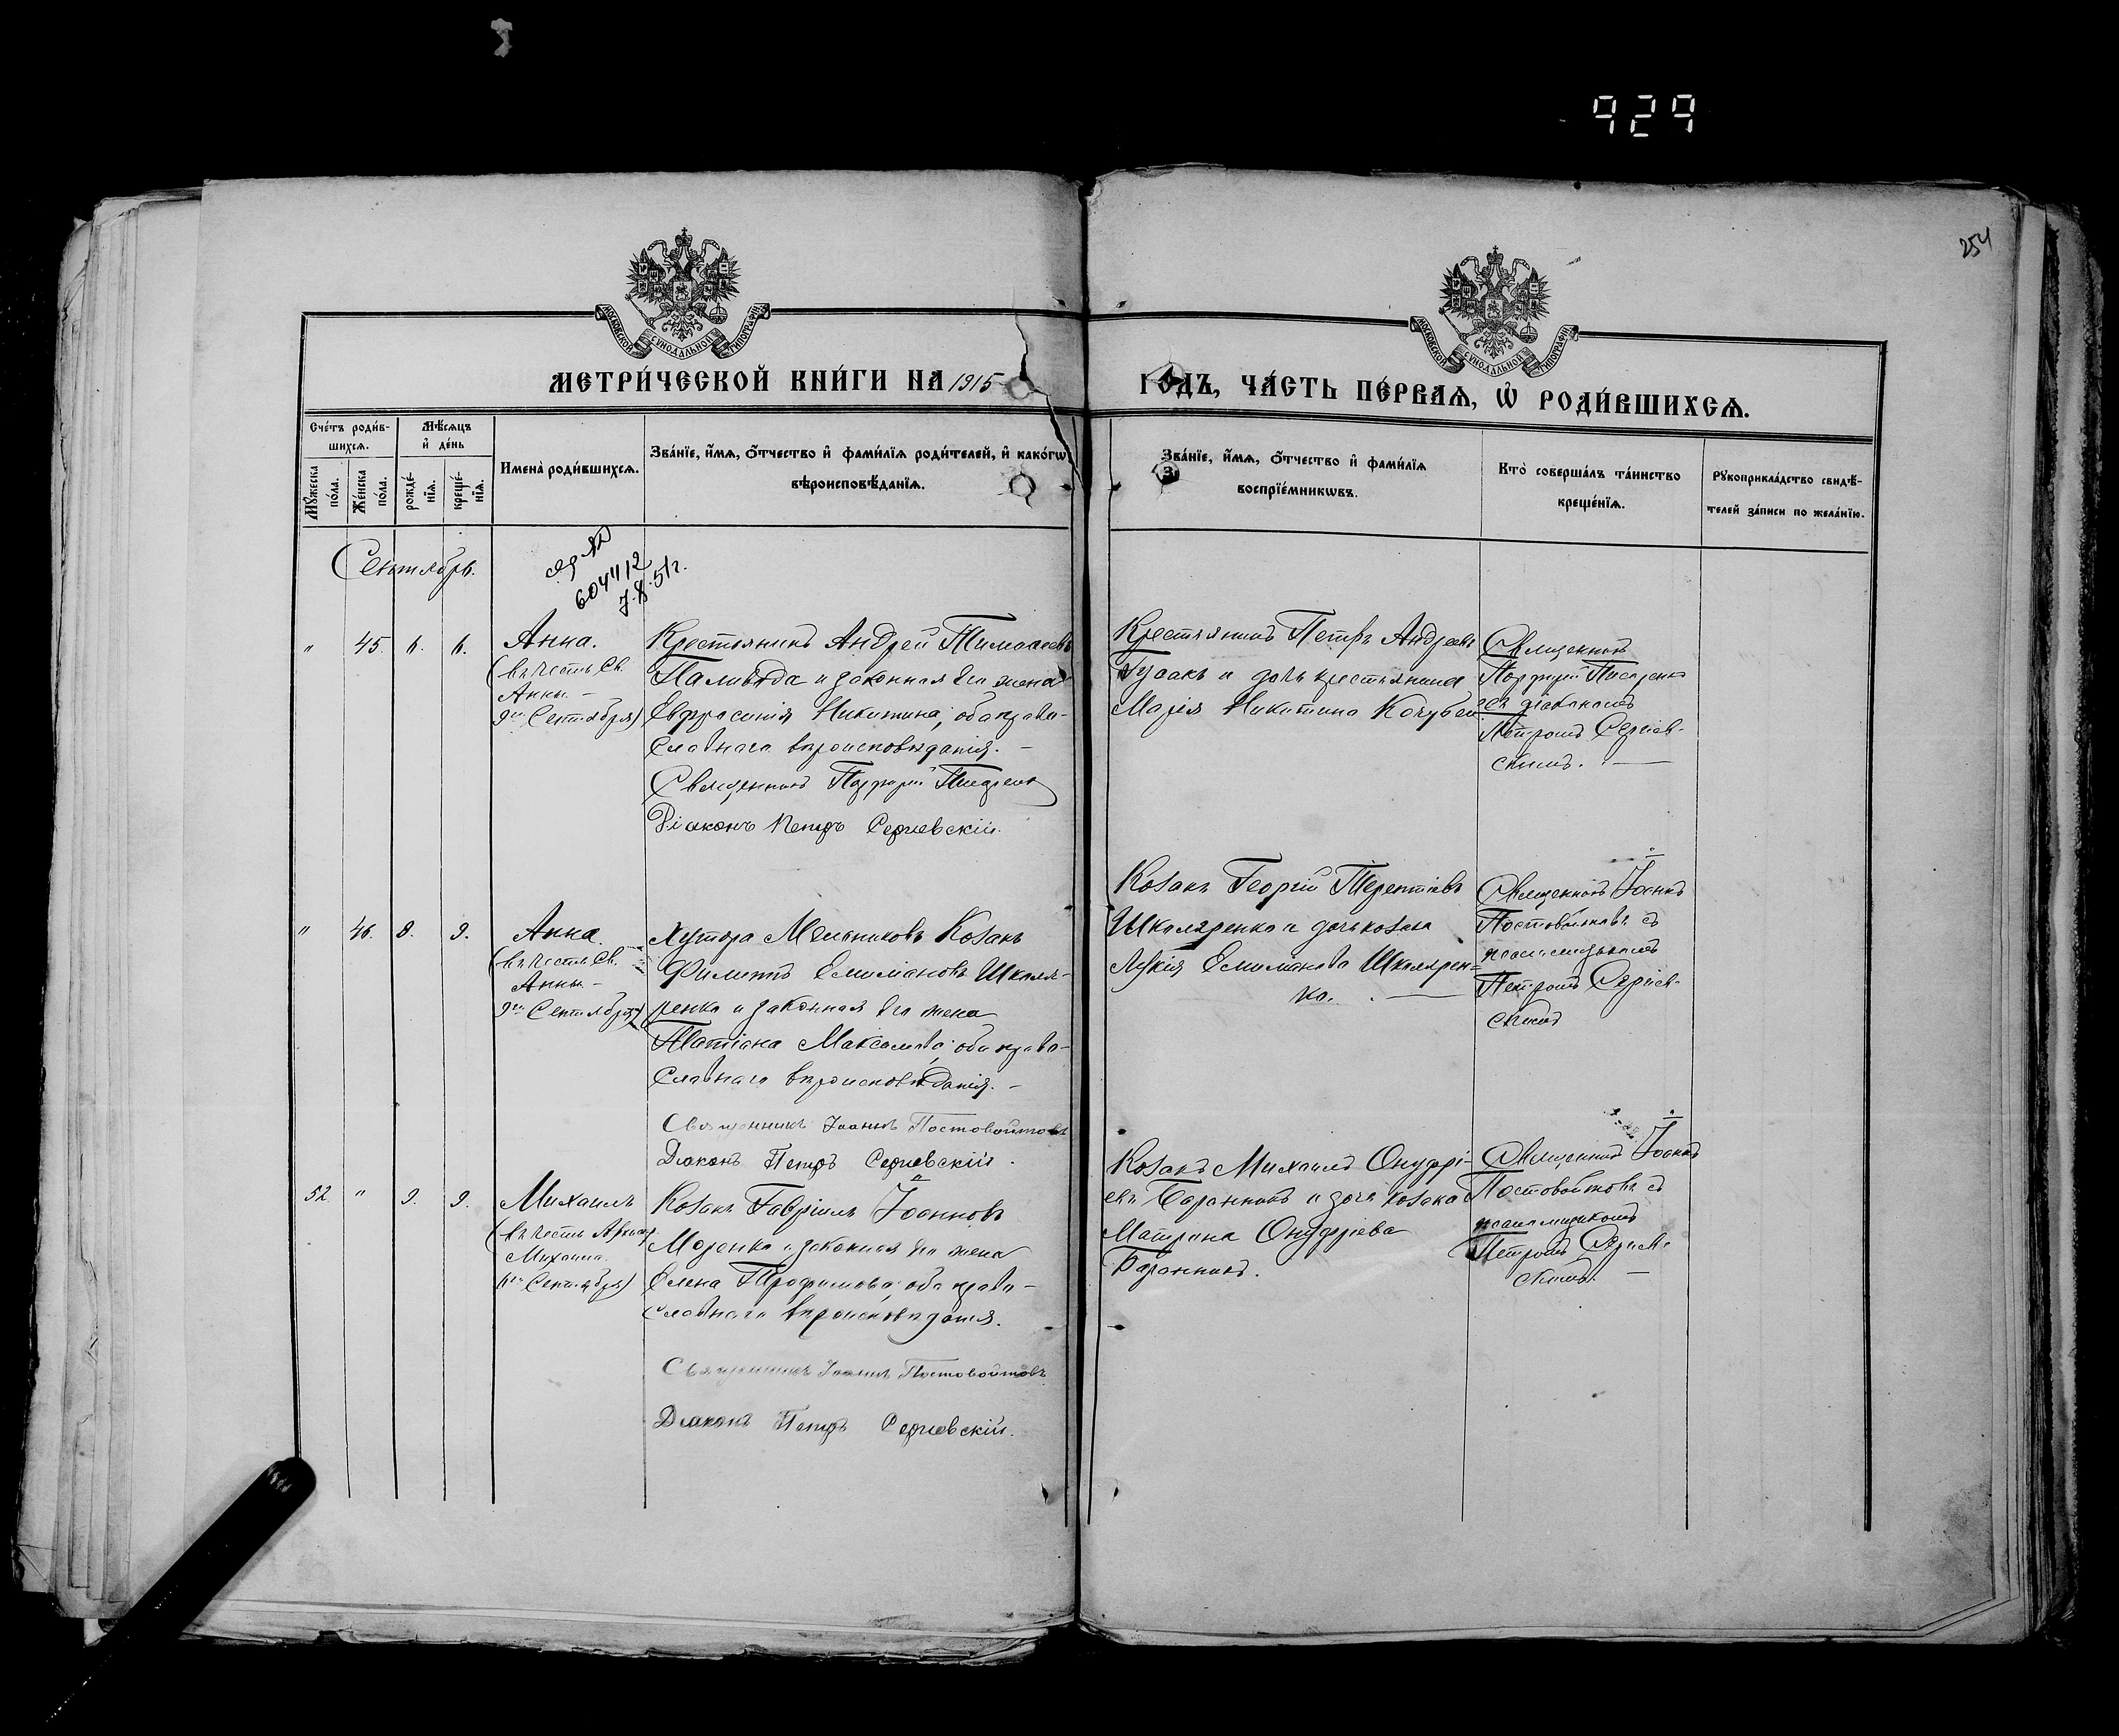 929
254
МОСКОВСКОЙ СУНОДАЛЬНОЙ ТИПОГРАФІИ
МОСКОВСКОЙ СУНОДАЛЬНОЙ ТИПОГРАФІИ
МЕТРИ́ЧЕСКОЙ КНИ́ГИ НА 1915
ГОДЪ, ЧА́СТЬ ПЕ́РВАѦ, Ѡ҆ РОДИ́ВШИХСѦ.
Сче́тъ роди́в-
шихсѧ.
Мѣ́сѧцъ
и҆ де́нь
Мꙋ́жеска
по́ла.
Же́нска
по́ла.
рожде́-
нїѧ.
креще́-
нїѧ.
Имена̀ роди́вшихсѧ.
Зва́нїе, и҆́мѧ, ѻ҆́тчество и҆ фами́лїѧ роди́телей, и҆ како́гѡ
вѣроисповѣ́данїѧ.
Зва́нїе, и҆́мѧ, ѻ҆́тчество и҆ фами́лїѧ
воспрїе́мникѡвъ.
Кто̀ соверша́лъ та́инство
креще́нїѧ.
Рꙋкоприкла́дство свидѣ́-
телей за́писи по жела́нїю.
Сентябрь.
604412
" 45. 6. 6. Анна.
(въ честь Св.
Анны. –
9го Сентября)
Крестьянинъ Андрей Тимофеевъ
Паливода и законная его жена
Евфросинія Никитина, оба право-
славнаго вѣроисповѣданія. –
Священникъ Порфирій Писаренко
Діаконъ Петръ Сергіевскій.
Крестьянинъ Петръ Андреевъ
Гусакъ и дочь крестьянина
Марія Никитина Кочубей.
Священникъ
Порфирій Писаренко
съ діакономъ
Петромъ Сергіев-
скимъ. –
" 46. 8. 9. Анна.
(въ честь Св.
Анны –
9го Сентября)
Хутора Мельниковъ Козакъ
Филиппъ Емиліановъ Школя-
ренко и законная его жена
Татіана Максимова, оба право-
славнаго вѣроисповѣданія. –
Священникъ Іоаннъ Постовойтовъ
Діаконъ Петръ Сергіевскій.
Козакъ Георгій Терентіевъ
Школяренко и дочь козака
Лукія Емиліанова Школярен-
ко. –
Священникъ Іоаннъ
Постовойтовъ съ
псаломщикомъ
Петромъ Сергіев-
скимъ
52 " 9. 9. Михаилъ
(въ честь Архис.
Михаила.
6го Сентября)
Козакъ Гавріилъ Іоанновъ
Мозенко и законная его жена
Елена Трофимова, оба право-
славнаго вѣроисповѣданія.
Священникъ Іоаннъ Постовойтовъ
Діаконъ Петръ Сергіевскій.
Козакъ Михаилъ Онуфрі-
евъ Баранникъ и дочь козака
Матрона Онуфріева
Баранникъ.
Священникъ Іоаннъ
Постовойтовъ съ
псаломщикомъ
Петромъ Сергіев-
скимъ. –